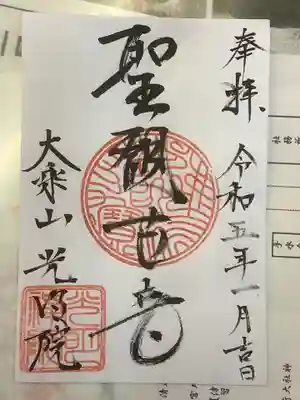 奉拝 令和五年一月吉日
聖観世音
大乗山 光明院